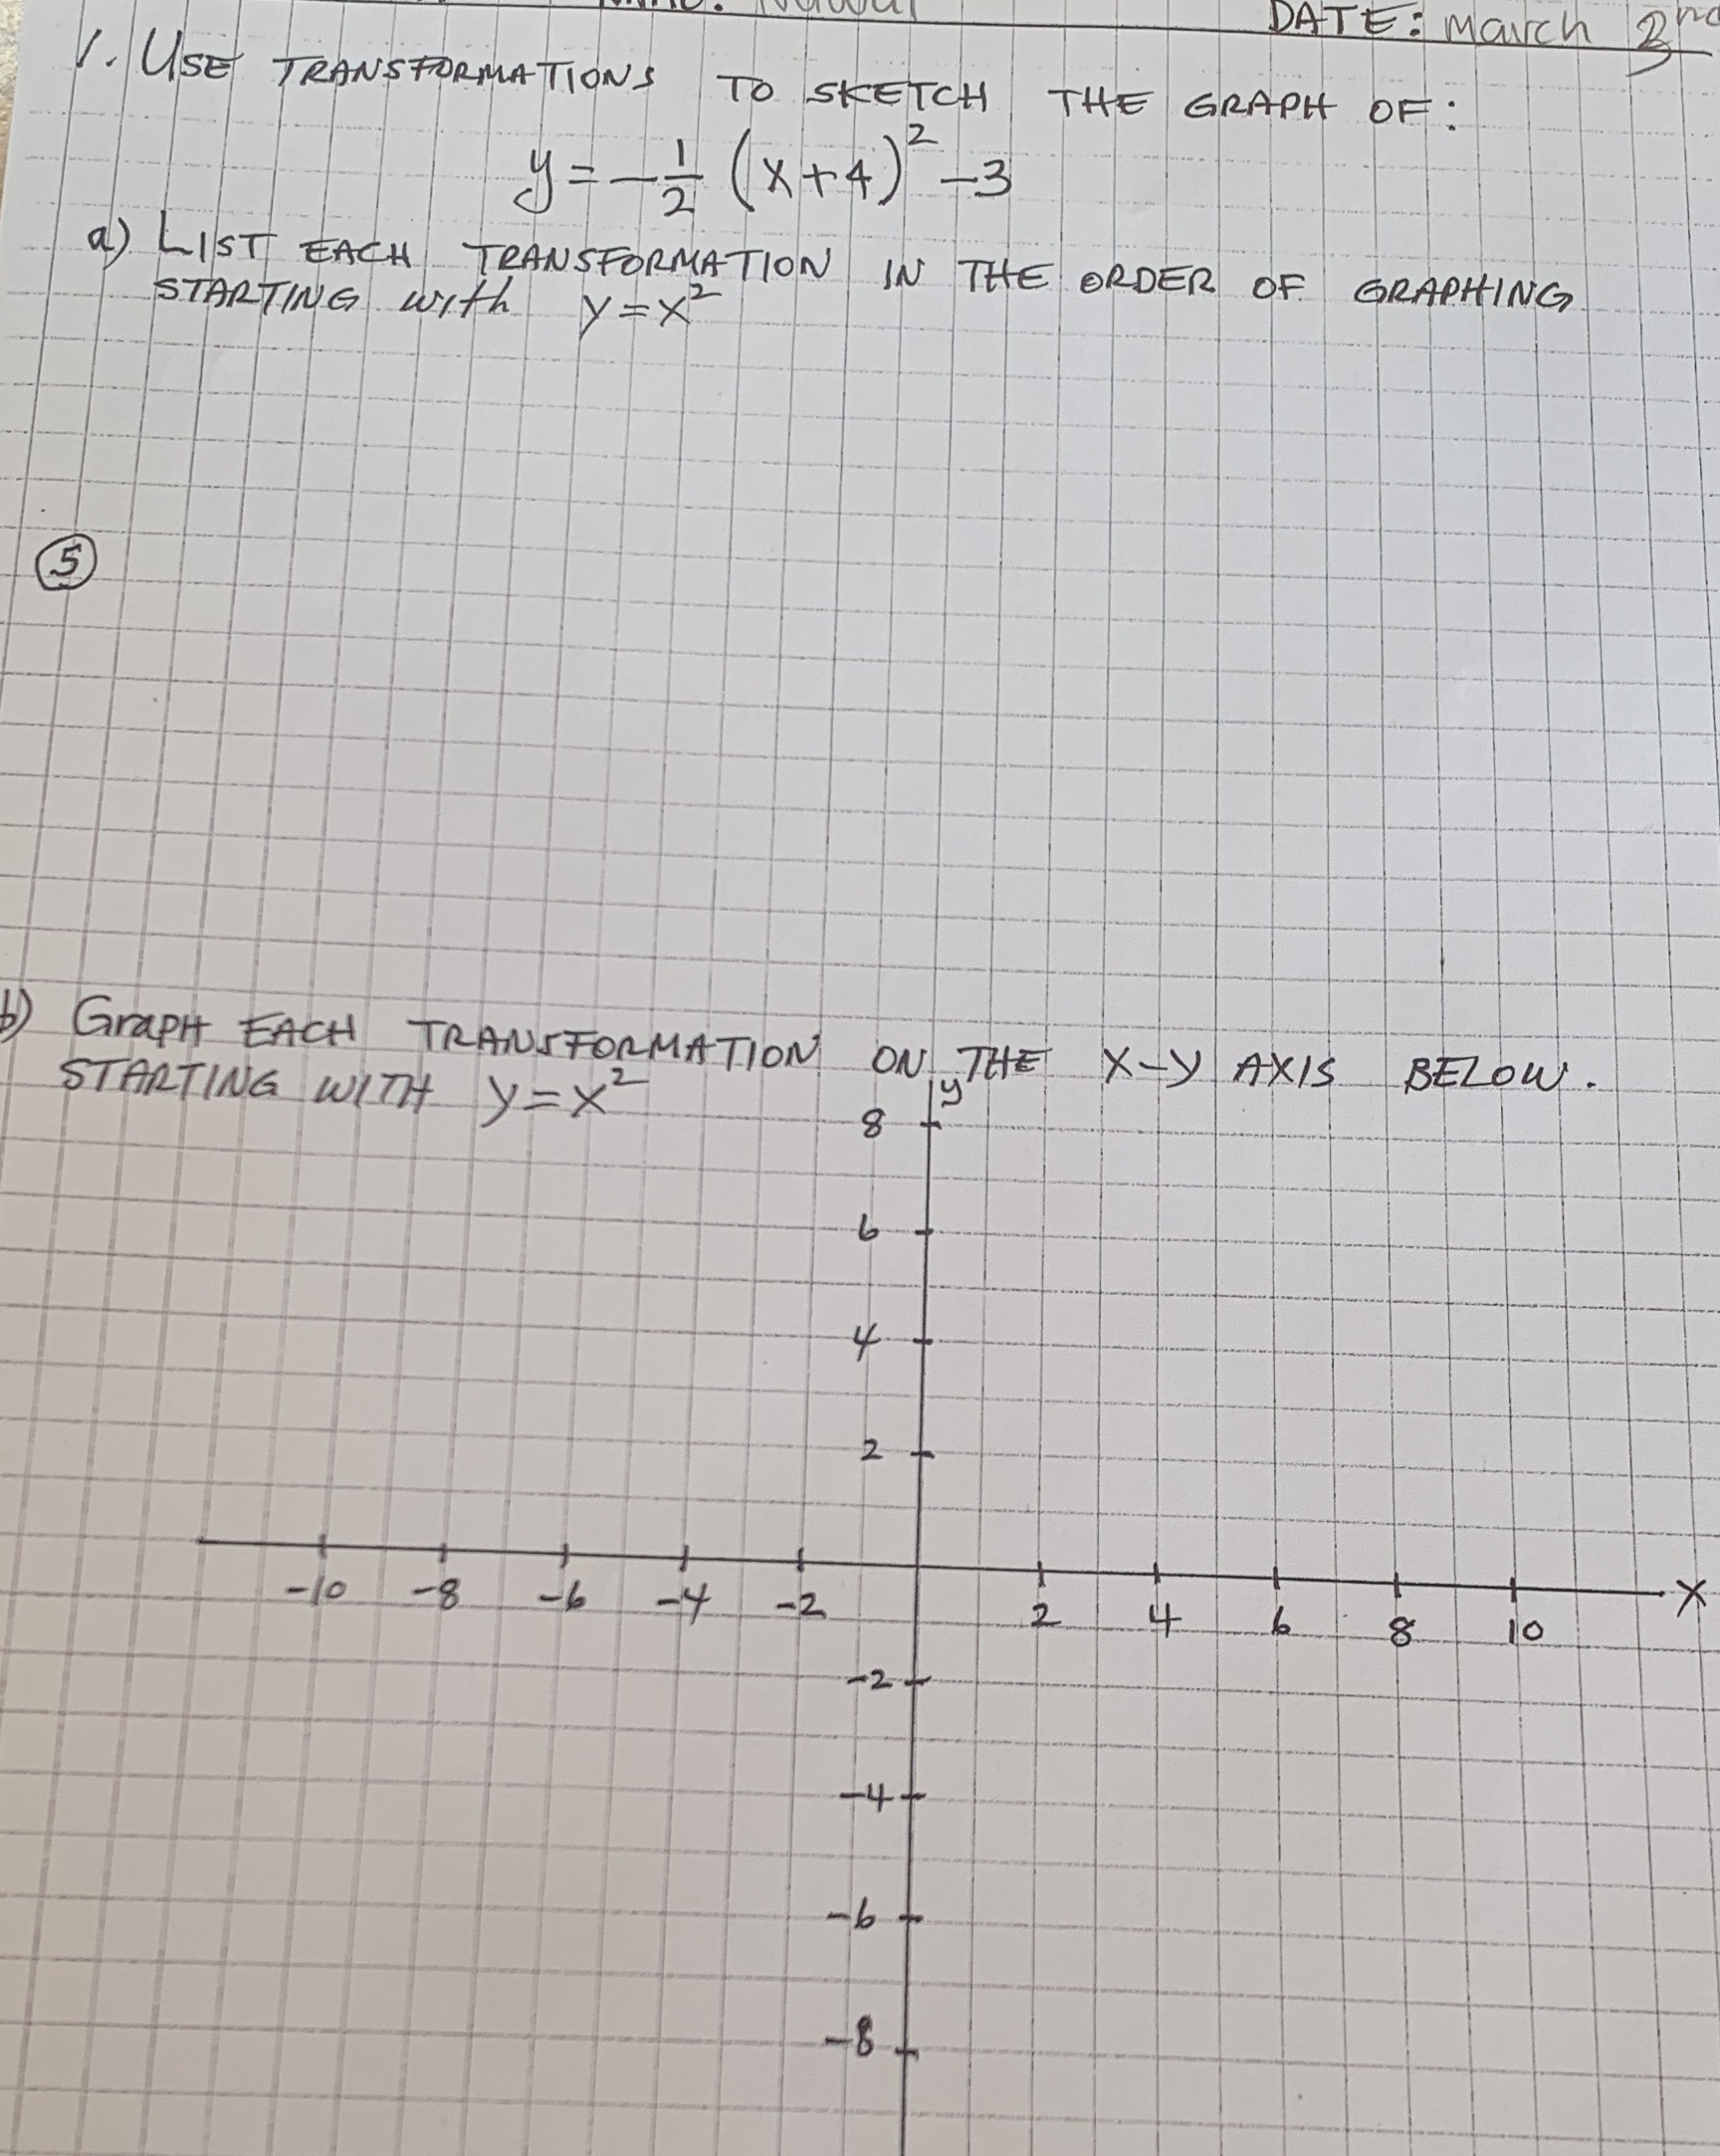 DATE: March 3nd
1. USE TRANSFORMATIONS TO SKETCH THE GRAPH OF:
y = -1/2 (x+4)² -3
a) LIST EACH TRANSFORMATION IN THE ORDER OF GRAPHING
STARTING with y=x²
5
b) GrapH EACH TRANSFORMATION ON THE X-Y AXIS BELOW.
STARTING WITH y=x²
y
8
6
4
2
-10 -8 -6 -4 -2 2 4 6 8 10 X
-2
-4
-6
-8